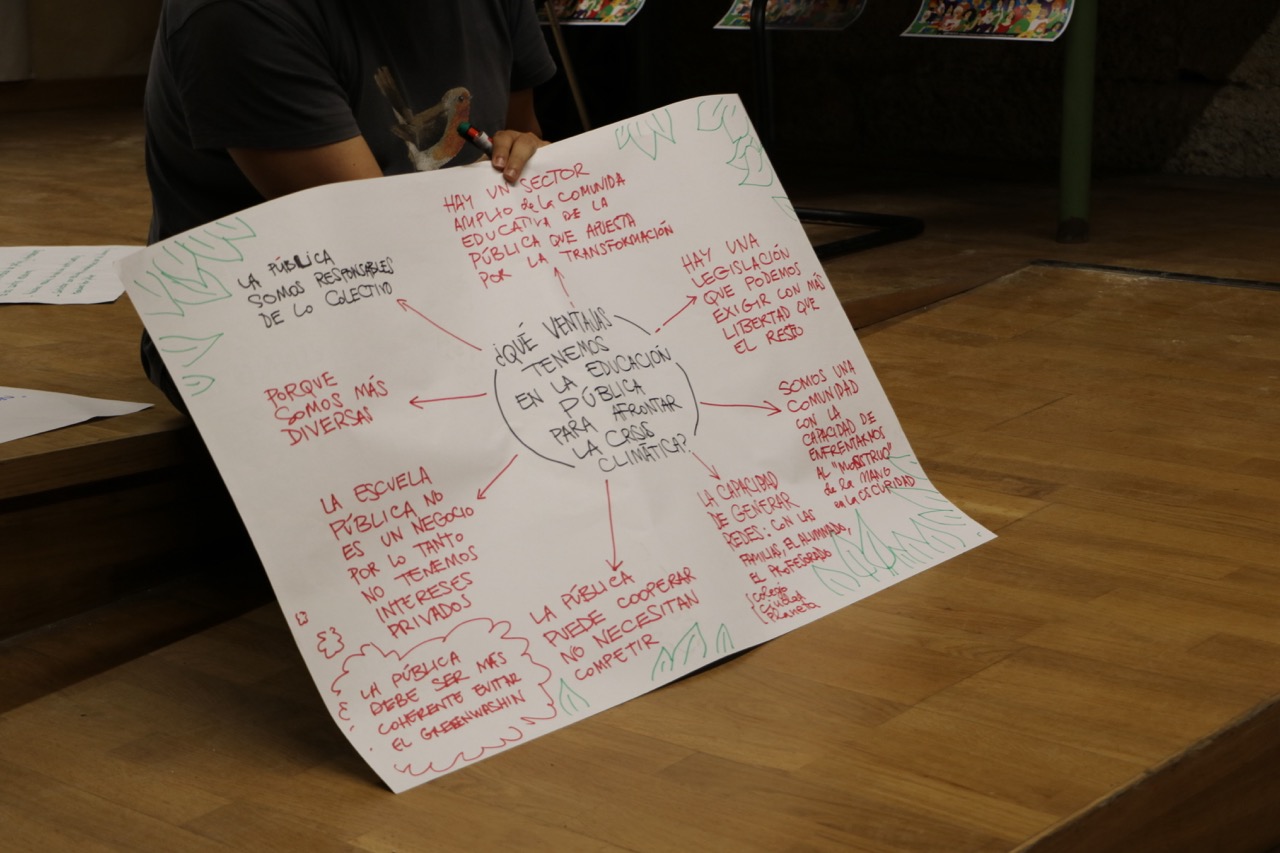 ¿QUÉ VENTAJAS
TENEMOS
EN LA EDUCACIÓN
PÚBLICA
PARA AFRONTAR
LA CRISIS
CLIMÁTICA?
LA PÚBLICA
SOMOS RESPONSABLES
DE LO COLECTIVO
HAY UN SECTOR
AMPLIO de la COMUNIDA
EDUCATIVA DE LA
PÚBLICA QUE APUESTA
POR LA TRANSFORMACIÓN
HAY UNA
LEGISLACIÓN
QUE PODEMOS
EXIGIR CON MÁS
LIBERTAD QUE
EL RESTO
SOMOS UNA
COMUNIDAD
CON LA
CAPACIDAD DE
ENFRENTARNOS
AL "MONSTRUO"
de la MANO
en la OSCURIDAD
LA CAPACIDAD
DE GENERAR
REDES: CON LAS
FAMILIAS, EL ALUMNADO,
EL PROFESORADO
Colegio
Ciudad
Planeta
LA PÚBLICA
PUEDE COOPERAR
NO NECESITAN
COMPETIR
LA ESCUELA
PÚBLICA NO
ES UN NEGOCIO
POR LO TANTO
NO TENEMOS
INTERESES
PRIVADOS
PORQUE
SOMOS MÁS
DIVERSAS
LA PÚBLICA
DEBE SER MÁS
COHERENTE EVITAR
EL GREENWASHIN